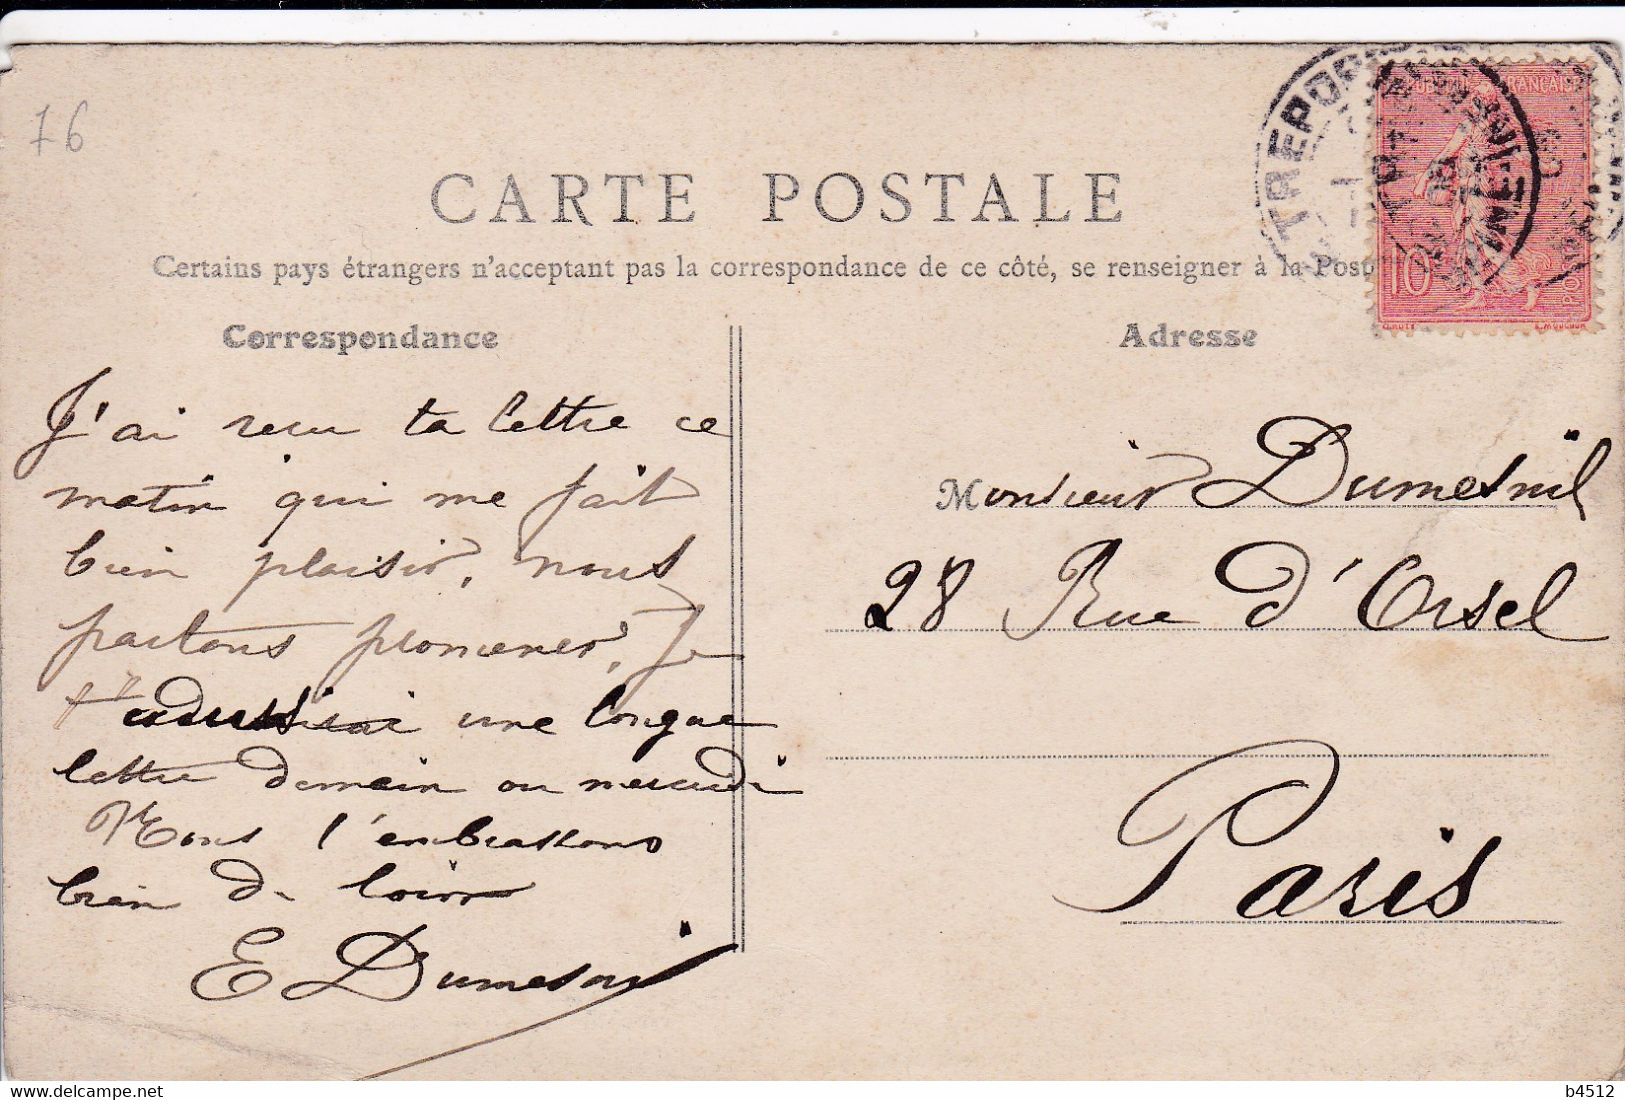 76
CARTE POSTALE
Certains pays étrangers n'acceptant pas la correspondance de ce côté, se renseigner à la Post
Correspondance
J'ai recu ta lettre ce
matin qui me fait
bien plaisir, nous
partons promener, Je
t'adresserai une longue
lettre demain ou mercredi
Nous t'embrassons
bien de loin
E Dumesnil
Adresse
Monsieur Dumesnil
28 Rue d'Orsel
Paris
TREPOR
FRANÇAISE
10
b4512